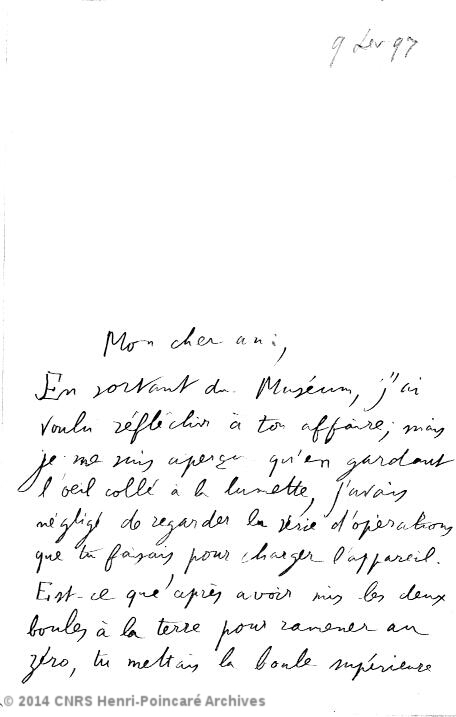 9 fev 97
Mon cher ami,
En sortant du Muséum, j'ai
voulu réfléchir à ton affaire; mais
je me suis aperçu qu'en gardant
l'oeil collé à la lunette, j'avais
négligé de regarder la série d'opérations
que tu faisais pour charger l'appareil.
Est-ce que après avoir mis les deux
boules à la terre pour ramener au
zéro, tu mettais la boule supérieure
© 2014 CNRS Henri-Poincaré Archives